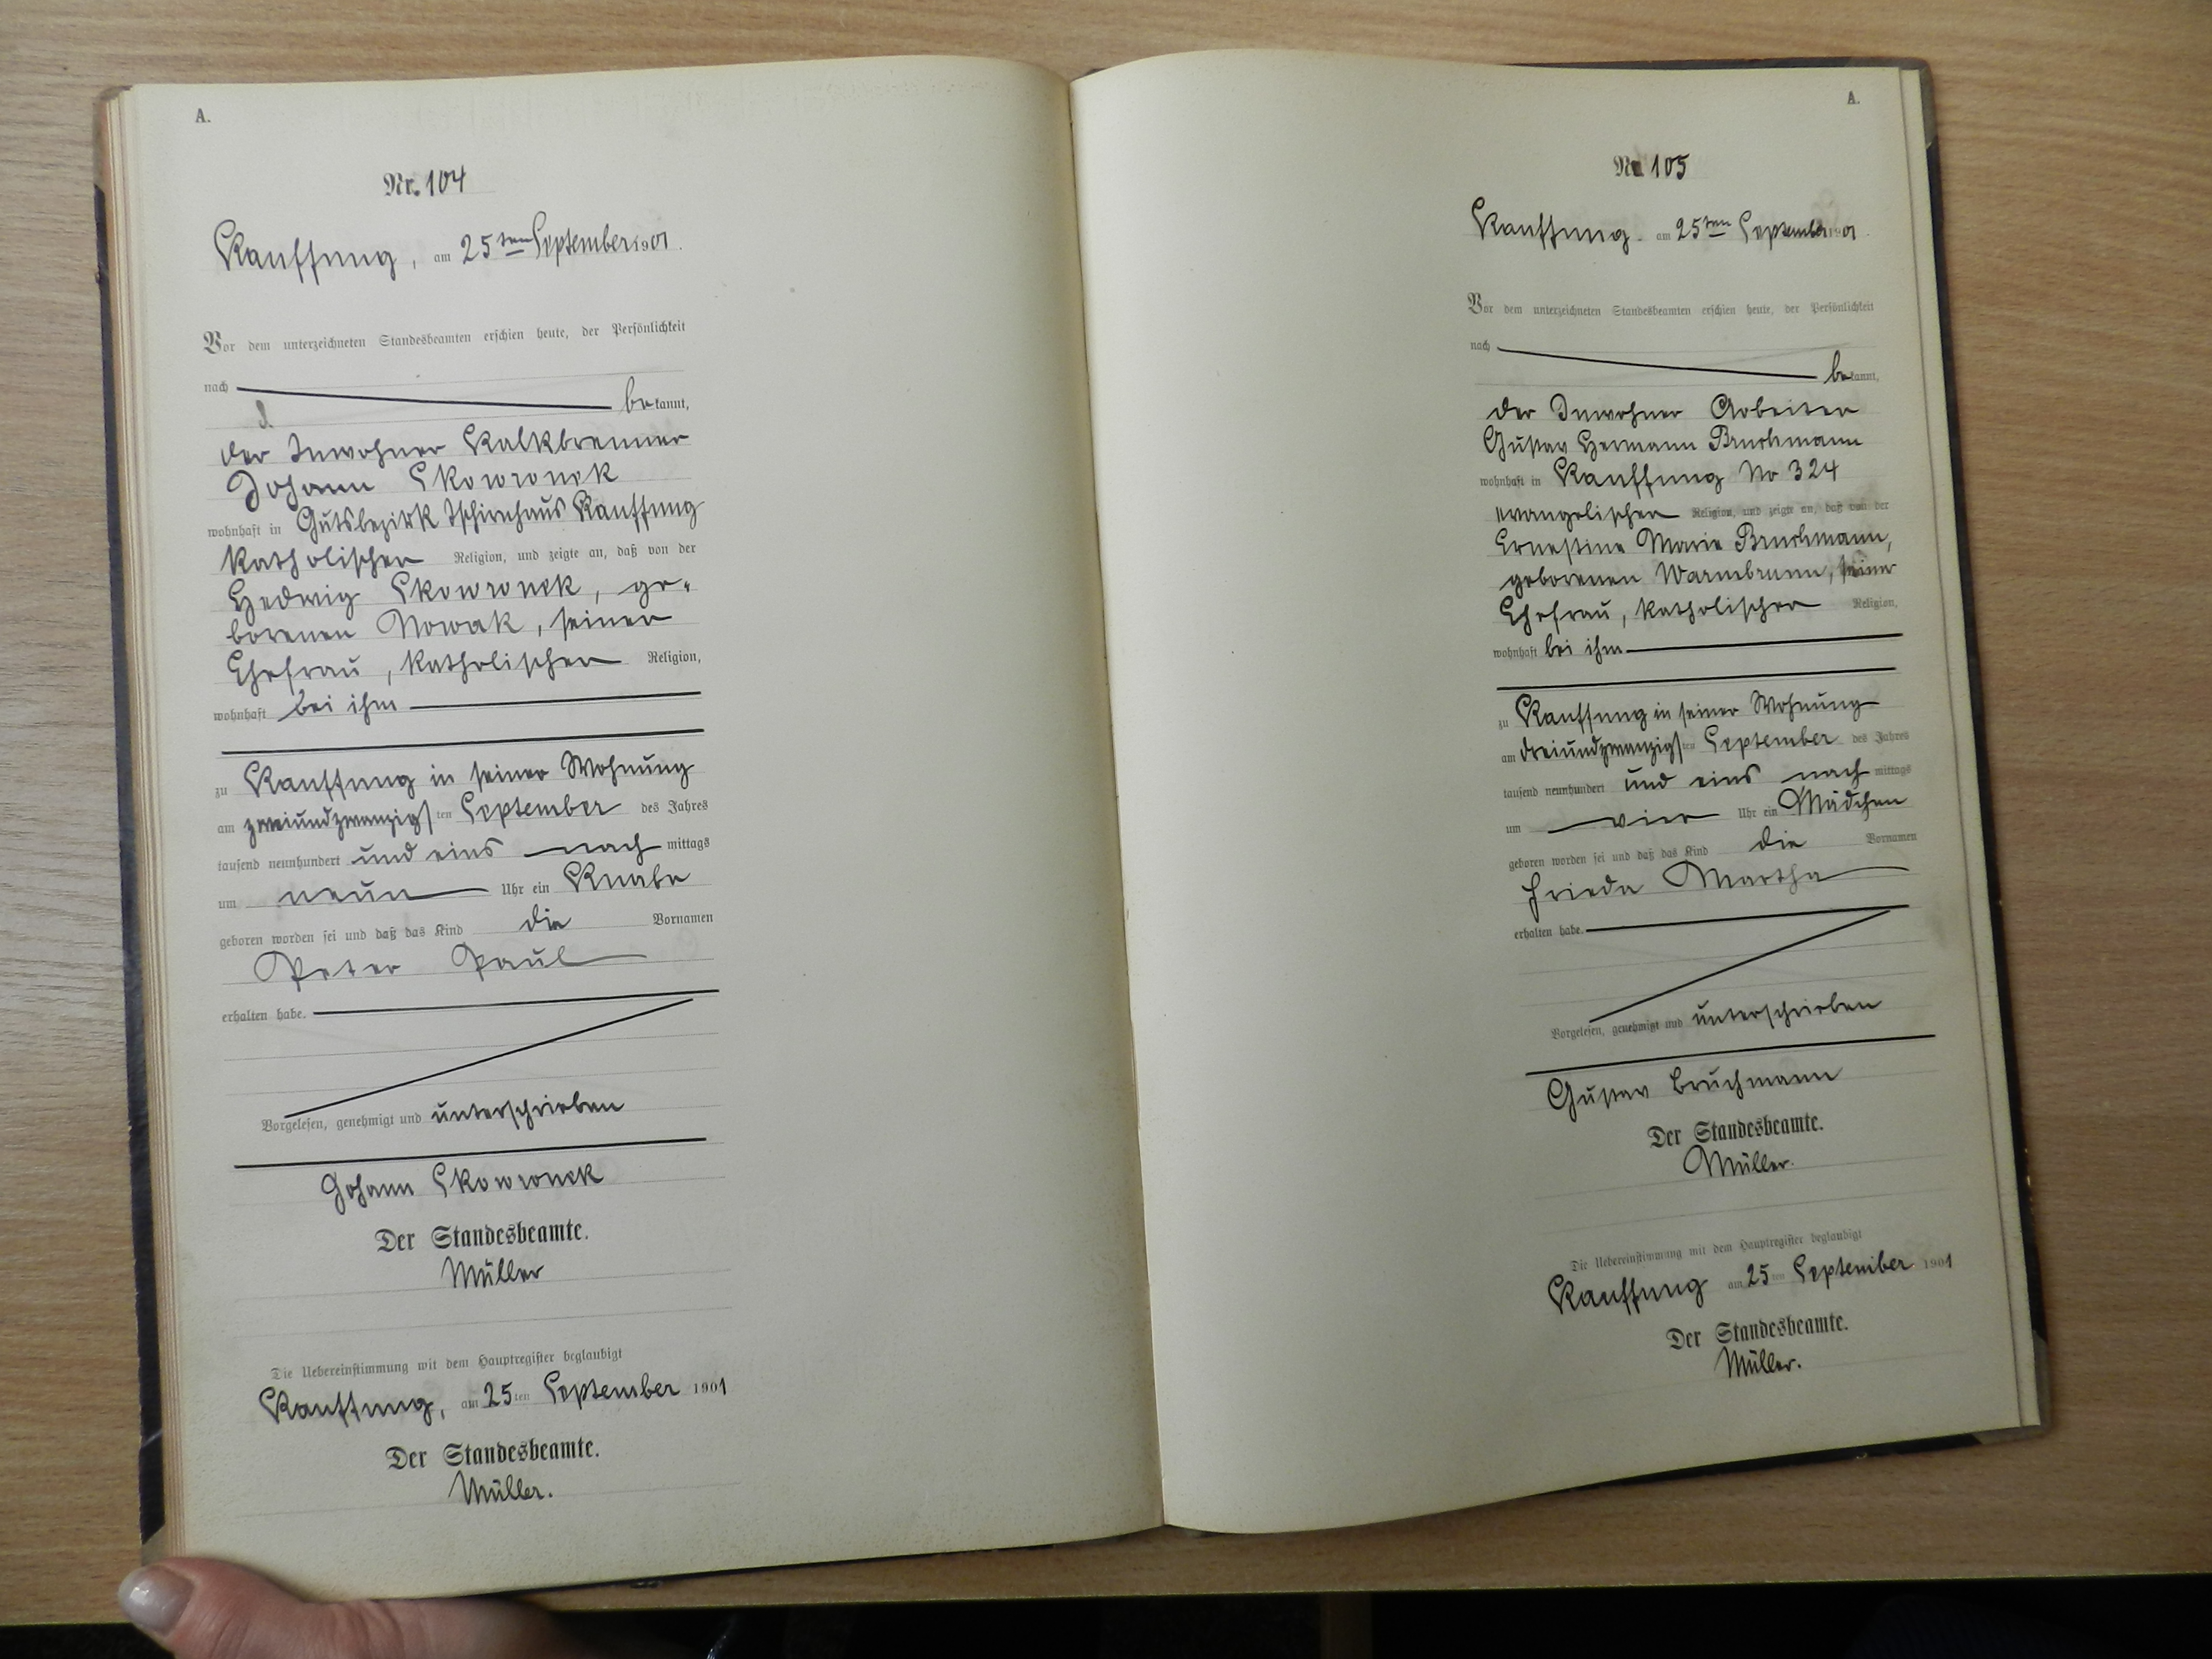 A.
Nr. 104
Kauffung, am 25ten September 1901.
Vor dem unterzeichneten Standesbeamten erschien heute, der Persönlichkeit
nach
bekannt,
der Inwohner Kalkbrenner
Johann Skowronek
wohnhaft in Gutsbezirk Tschirnhaus Kauffung
katholischer Religion, und zeigte an, daß von der
Hedwig Skowronek, ge-
borenen Nowak, seiner
Ehefrau, katholischer Religion,
wohnhaft bei ihm
zu Kauffung in seiner Wohnung
am zweiundzwanzigsten September des Jahres
tausend neunhundert und eins nachmittags
um neun Uhr ein Knabe
geboren worden sei und daß das Kind die Vornamen
Peter Paul
erhalten habe.
Vorgelesen, genehmigt und unterschrieben
Johann Skowronek
Der Standesbeamte.
Müller
Die Uebereinstimmung mit dem Hauptregister beglaubigt
Kauffung, am 25ten September 1901
Der Standesbeamte.
Müller.
A.
Nr. 105
Kauffung. am 25ten September 1901.
Vor dem unterzeichneten Standesbeamten erschien heute, der Persönlichkeit
nach
bekannt,
der Inwohner Arbeiter
Gustav Hermann Bruchmann
wohnhaft in Kauffung No 324
evangelischer Religion, und zeigte an, daß von der
Ernestine Marie Bruchmann,
geborenen Warmbrunn, seiner
Ehefrau, katholischer Religion,
wohnhaft bei ihm
zu Kauffung in seiner Wohnung
am dreiundzwanzigsten September des Jahres
tausend neunhundert und eins nachmittags
um vier Uhr ein Mädchen
geboren worden sei und daß das Kind die Vornamen
Frieda Martha
erhalten habe.
Vorgelesen, genehmigt und unterschrieben
Gustav Bruchmann
Der Standesbeamte.
Müller.
Die Uebereinstimmung mit dem Hauptregister beglaubigt
Kauffung am 25ten September 1901
Der Standesbeamte.
Müller.